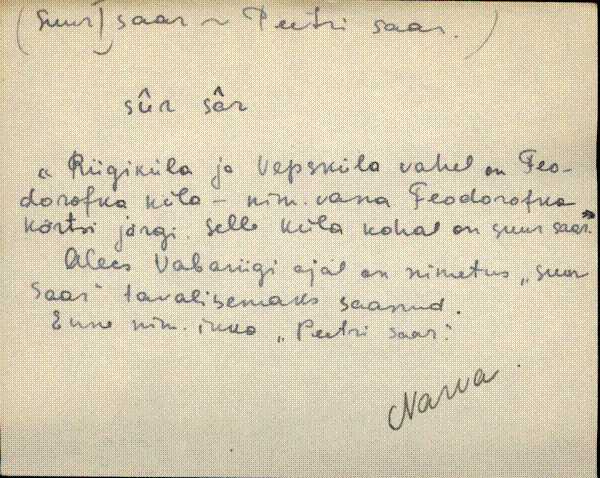 (Suur) saar ~ Peetri saar.)
sûr sâr
„ Riigiküla ja Vepsküla vahel on Feo-
dorofka küla – nim. vana Feodorofka
kõrtsi järgi. Selle küla kohal on suur saar."
Alles Vabariigi ajal on nimetus „suur
saar" tavalisemaks saanud.
Enne nim. ikka „Peetri saar".
Narva.